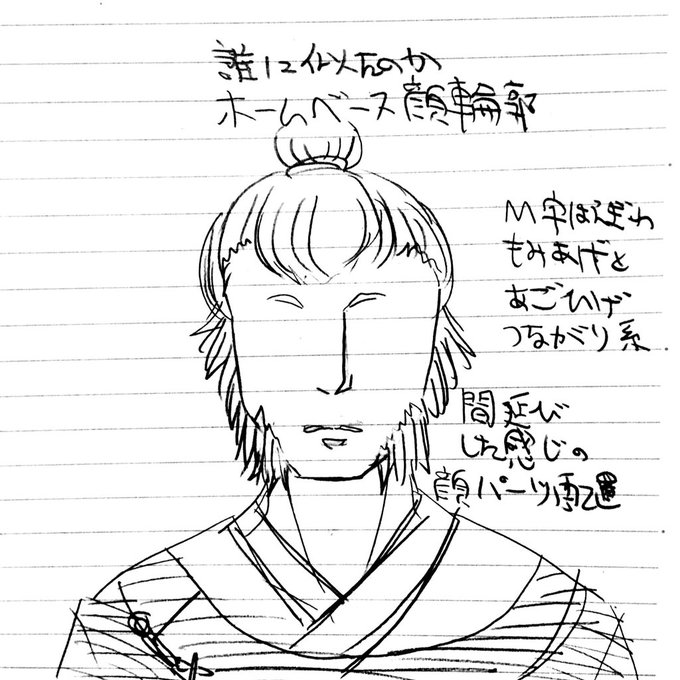 誰に似たのか
ホームベース顔輪郭
M字はえぎわ
もみあげと
あごひげ
つながり系
間延び
した感じの
顔パーツ配置